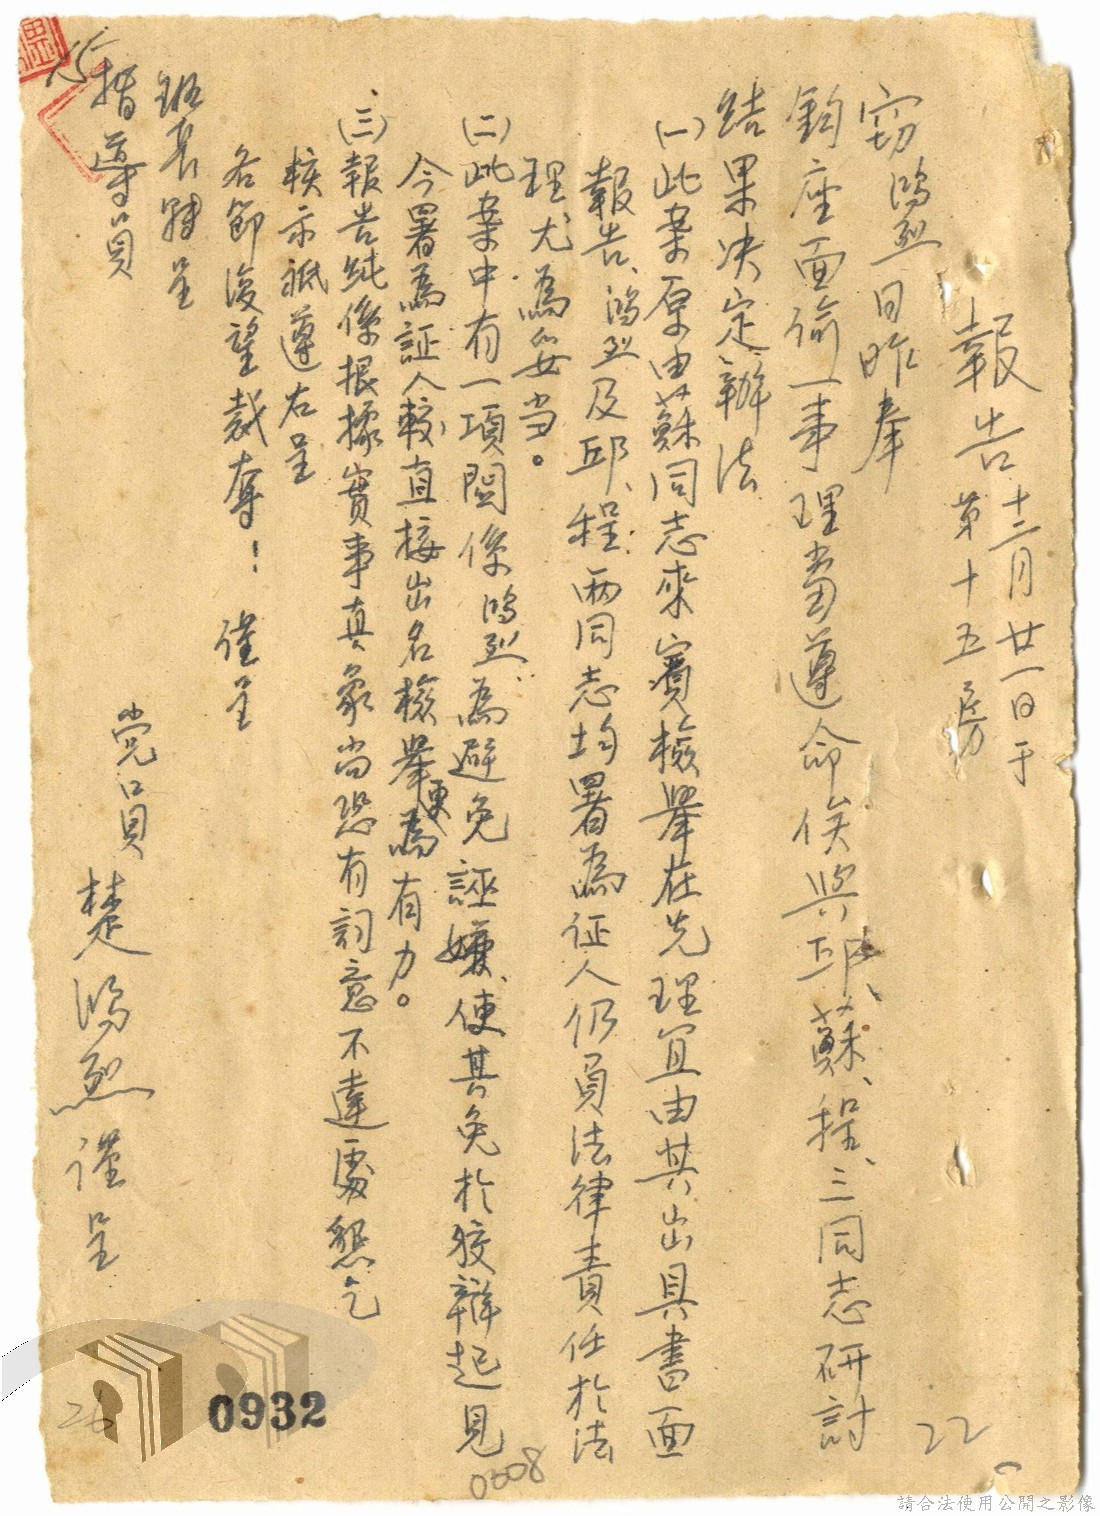 報告 十二月廿一日于
第十五房
窃鴻烈日昨奉
鈞座面諭一事理當遵命俟與邱、蘇、程、三同志研討
結果決定辦法
(一)此案原由蘇同志來賓檢舉在先理宜由其出具書面
報告、鴻烈及邱、程、兩同志均署為証人仍負法律責任於法
理尤為妥当。
(二)此案中有一項關係鴻烈為避免誣嫌、使其免於狡辯起見
今署為証人較直接出名檢舉更為有力。
(三)報告純係根據實事真象尚恐有詞意不達處懇乞
核示祗遵右呈
各節復望裁奪！ 僅呈
班長轉呈
指導員
党員 楚鴻烈 謹呈
0932
0308
22
26
請合法使用公開之影像